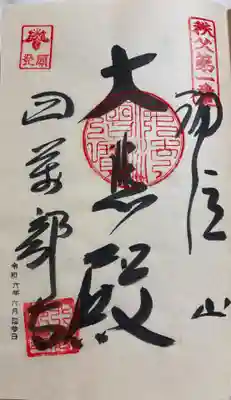 秩父第一番
誦経山
大悲殿
四萬部寺
発願
令和六年六月